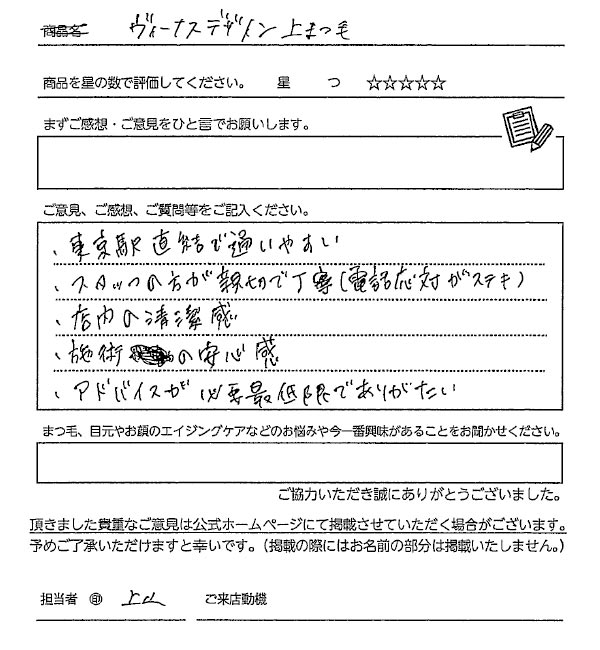 商品名 ヴィーナスデザイン上まつ毛
商品を星の数で評価してください。 星 つ ☆☆☆☆☆
まずご感想・ご意見をひと言でお願いします。
ご意見、ご感想、ご質問等をご記入ください。
、東京駅直結で通いやすい
、スタッフの方が親切で丁寧(電話応対がステキ)
、店内の清潔感
、施術の安心感
、アドバイスが必要最低限でありがたい
まつ毛、目元やお顔のエイジングケアなどのお悩みや今一番興味があることをお聞かせください。
ご協力いただき誠にありがとうございました。
頂きました貴重なご意見は公式ホームページにて掲載させていただく場合がございます。
予めご了承いただけますと幸いです。(掲載の際にはお名前の部分は掲載いたしません。)
担当者 ㊞ 上山 ご来店動機